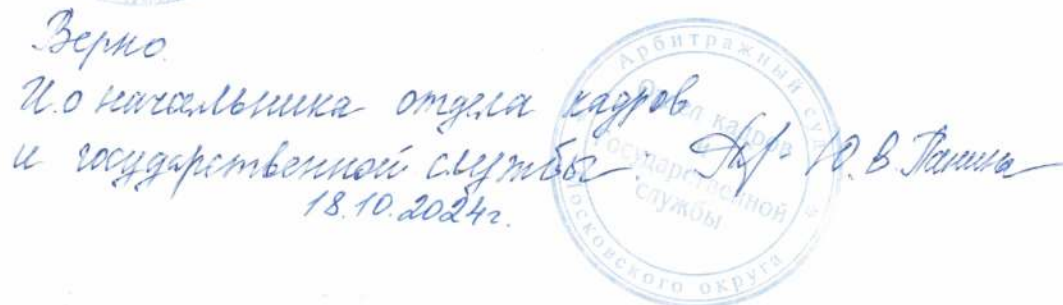 Верно.
И.о начальника отдела кадров
и государственной службы Ю.В. Панина
18.10.2024г.
Арбитражный суд Московского округа
Отдел кадров
и
государственной
службы